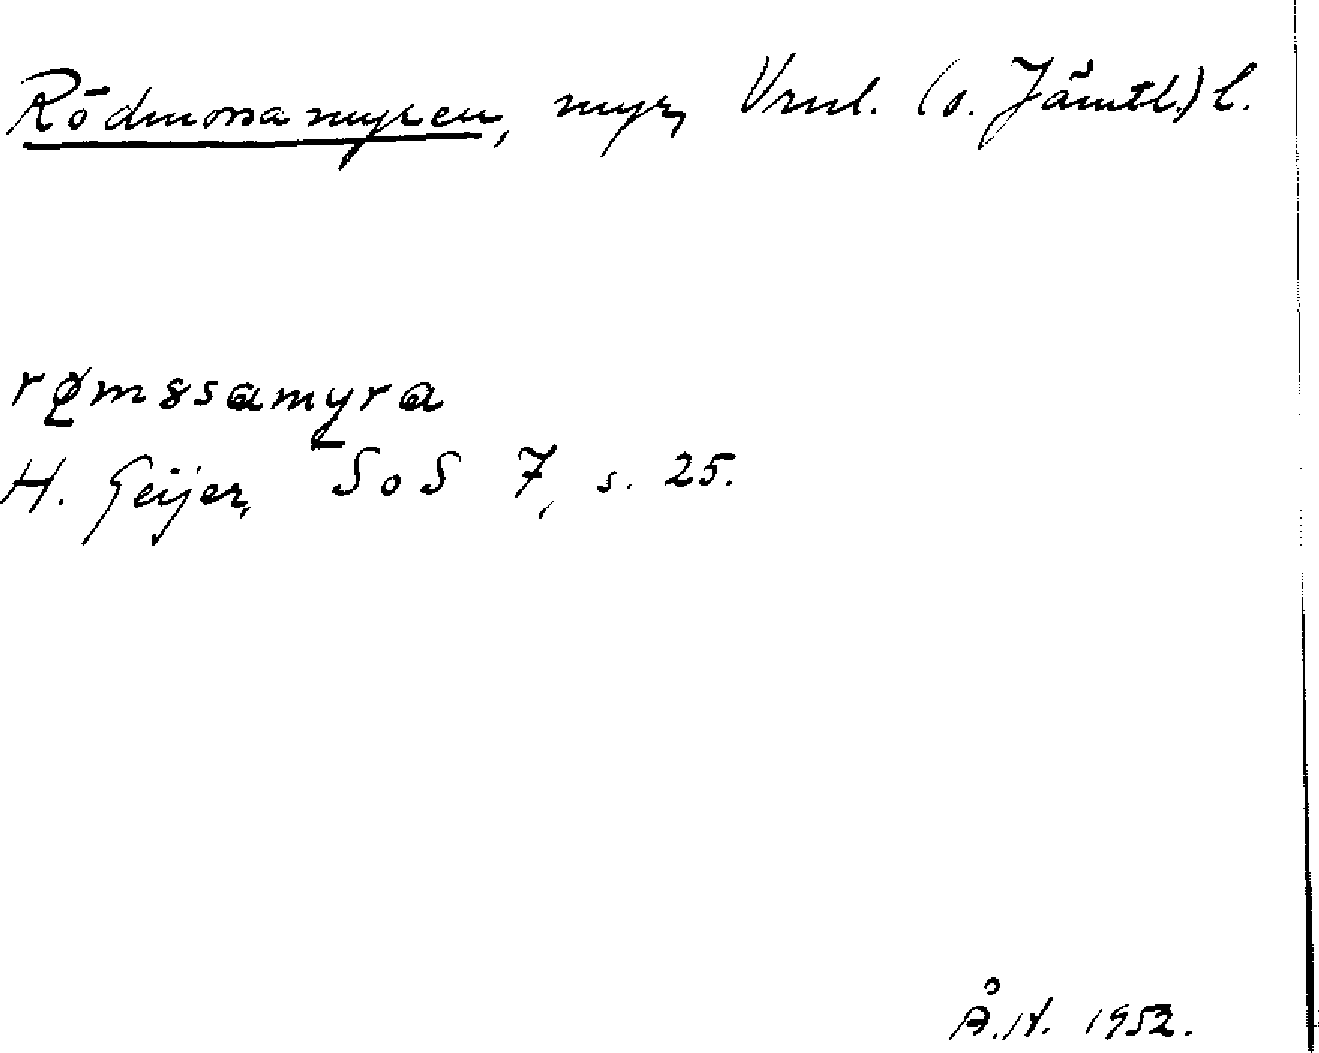 Rödmossamyren, myr, Vrml. (o. Jämtl.) l.
rømssamyra
H. Geijer, SoS 7, s. 25.
Å.H. 1952.